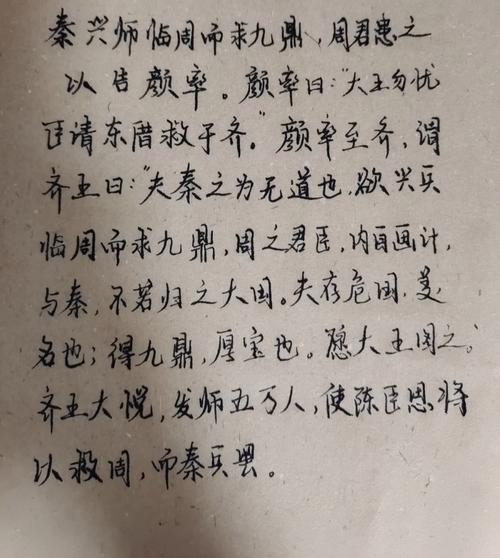 秦兴师临周而求九鼎,周君患之
以告颜率。颜率曰:“大王勿忧
臣请东借救于齐。”颜率至齐,谓
齐王曰:“夫秦之为无道也,欲兴兵
临周而求九鼎,周之君臣,内自画计,
与秦,不若归之大国。夫存危国,美
名也;得九鼎,厚宝也。愿大王图之。”
齐王大悦,发师五万人,使陈臣思将
以救周,而秦兵罢。